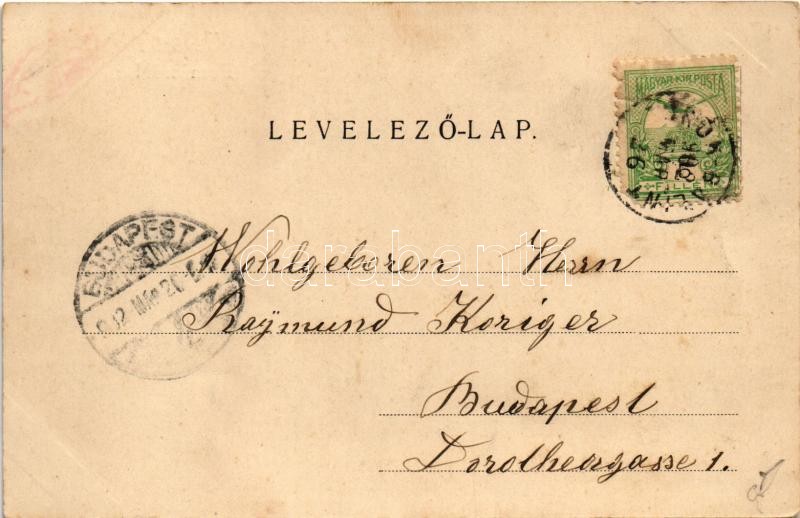 LEVELEZŐ-LAP.
MAGYAR KIR. POSTA
FILLÉR
BUDAPEST
Wohlgeboren Herrn
Raÿmund Koriger
Budapest
Dorotheagasse 1.
darabanth